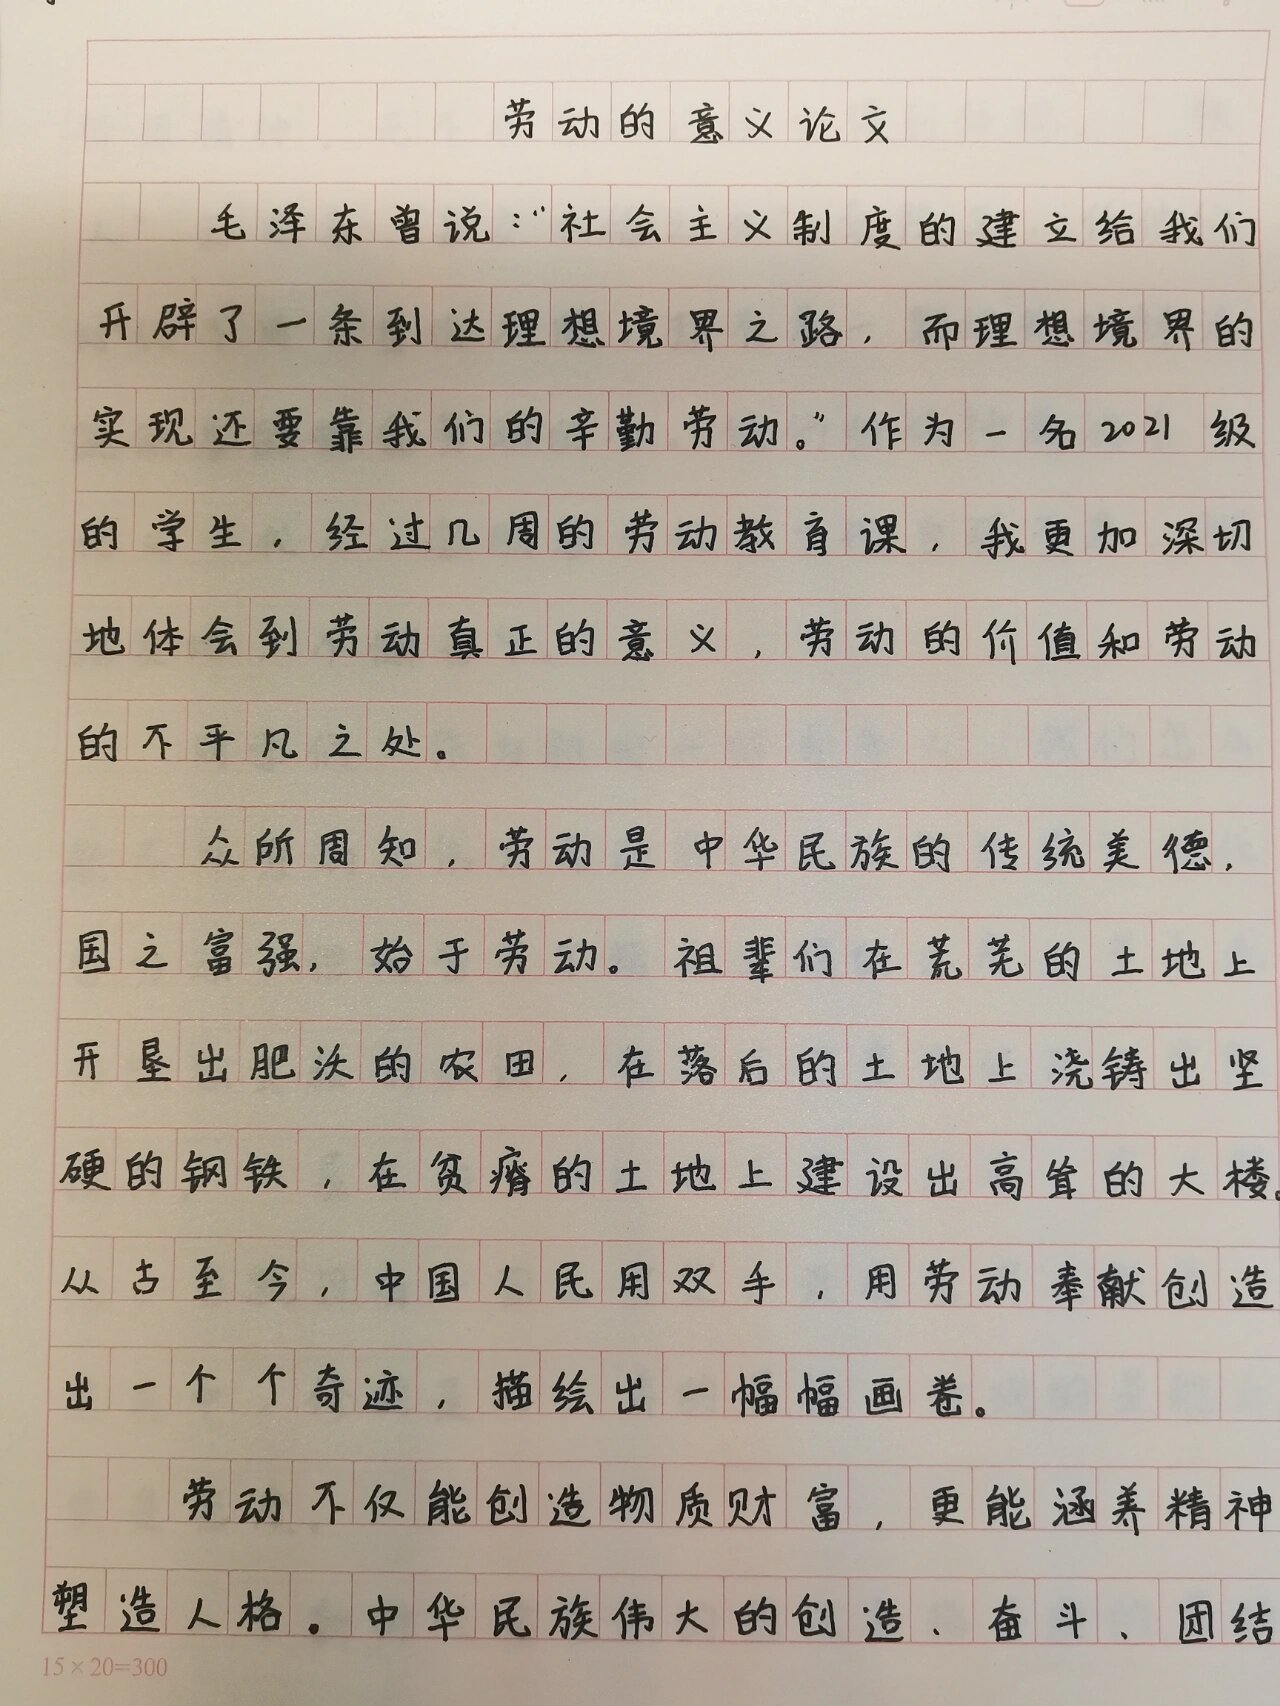 劳动的意义论文
毛泽东曾说:“社会主义制度的建立给我们
开辟了一条到达理想境界之路,而理想境界的
实现还要靠我们的辛勤劳动。”作为一名2021级
的学生,经过几周的劳动教育课,我更加深切
地体会到劳动真正的意义,劳动的价值和劳动
的不平凡之处。
众所周知,劳动是中华民族的传统美德,
国之富强,始于劳动。祖辈们在荒芜的土地上
开垦出肥沃的农田,在落后的土地上浇铸出坚
硬的钢铁,在贫瘠的土地上建设出高耸的大楼。
从古至今,中国人民用双手,用劳动奉献创造
出一个个奇迹,描绘出一幅幅画卷。
劳动不仅能创造物质财富,更能涵养精神
塑造人格。中华民族伟大的创造、奋斗、团结
15×20=300